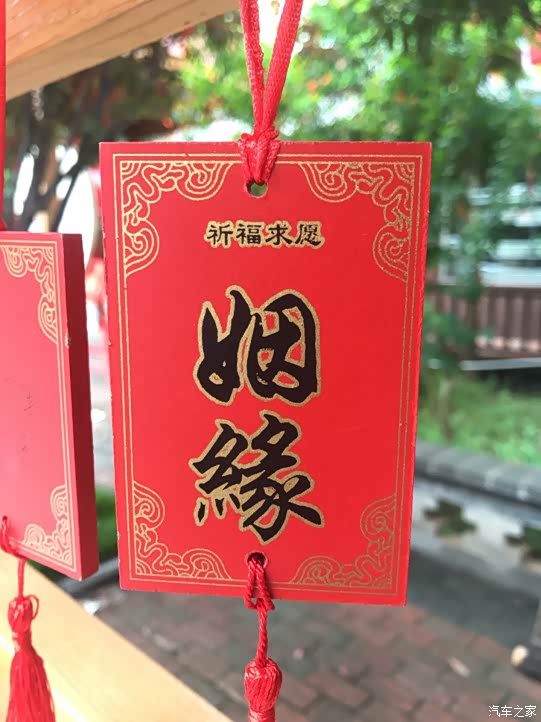 祈福求愿
姻
緣
汽车之家